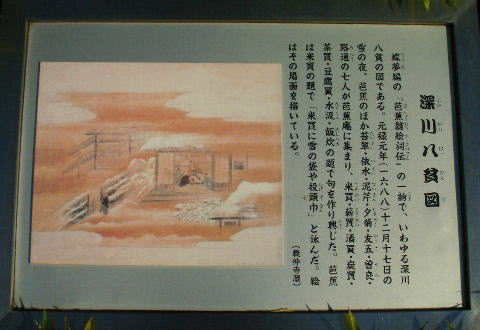 深川八貧図
蝶夢編の「芭蕉翁絵詞伝」の一齣で、いわゆる深川
八貧の図である。元禄元年（一六八八）十二月十七日の
雪の夜、芭蕉のほか苔翠・依水・泥芹・夕菊・友五・曽良・
路通の七人が芭蕉庵に集まり、米買・薪買・酒買・炭買・
茶買・豆腐買・水汲・飯炊の題で句を作り興じた。芭蕉
は米買の題で「米買に雪の袋や投頭巾」と詠んだ。絵
はその場面を描いている。
（義仲寺蔵）